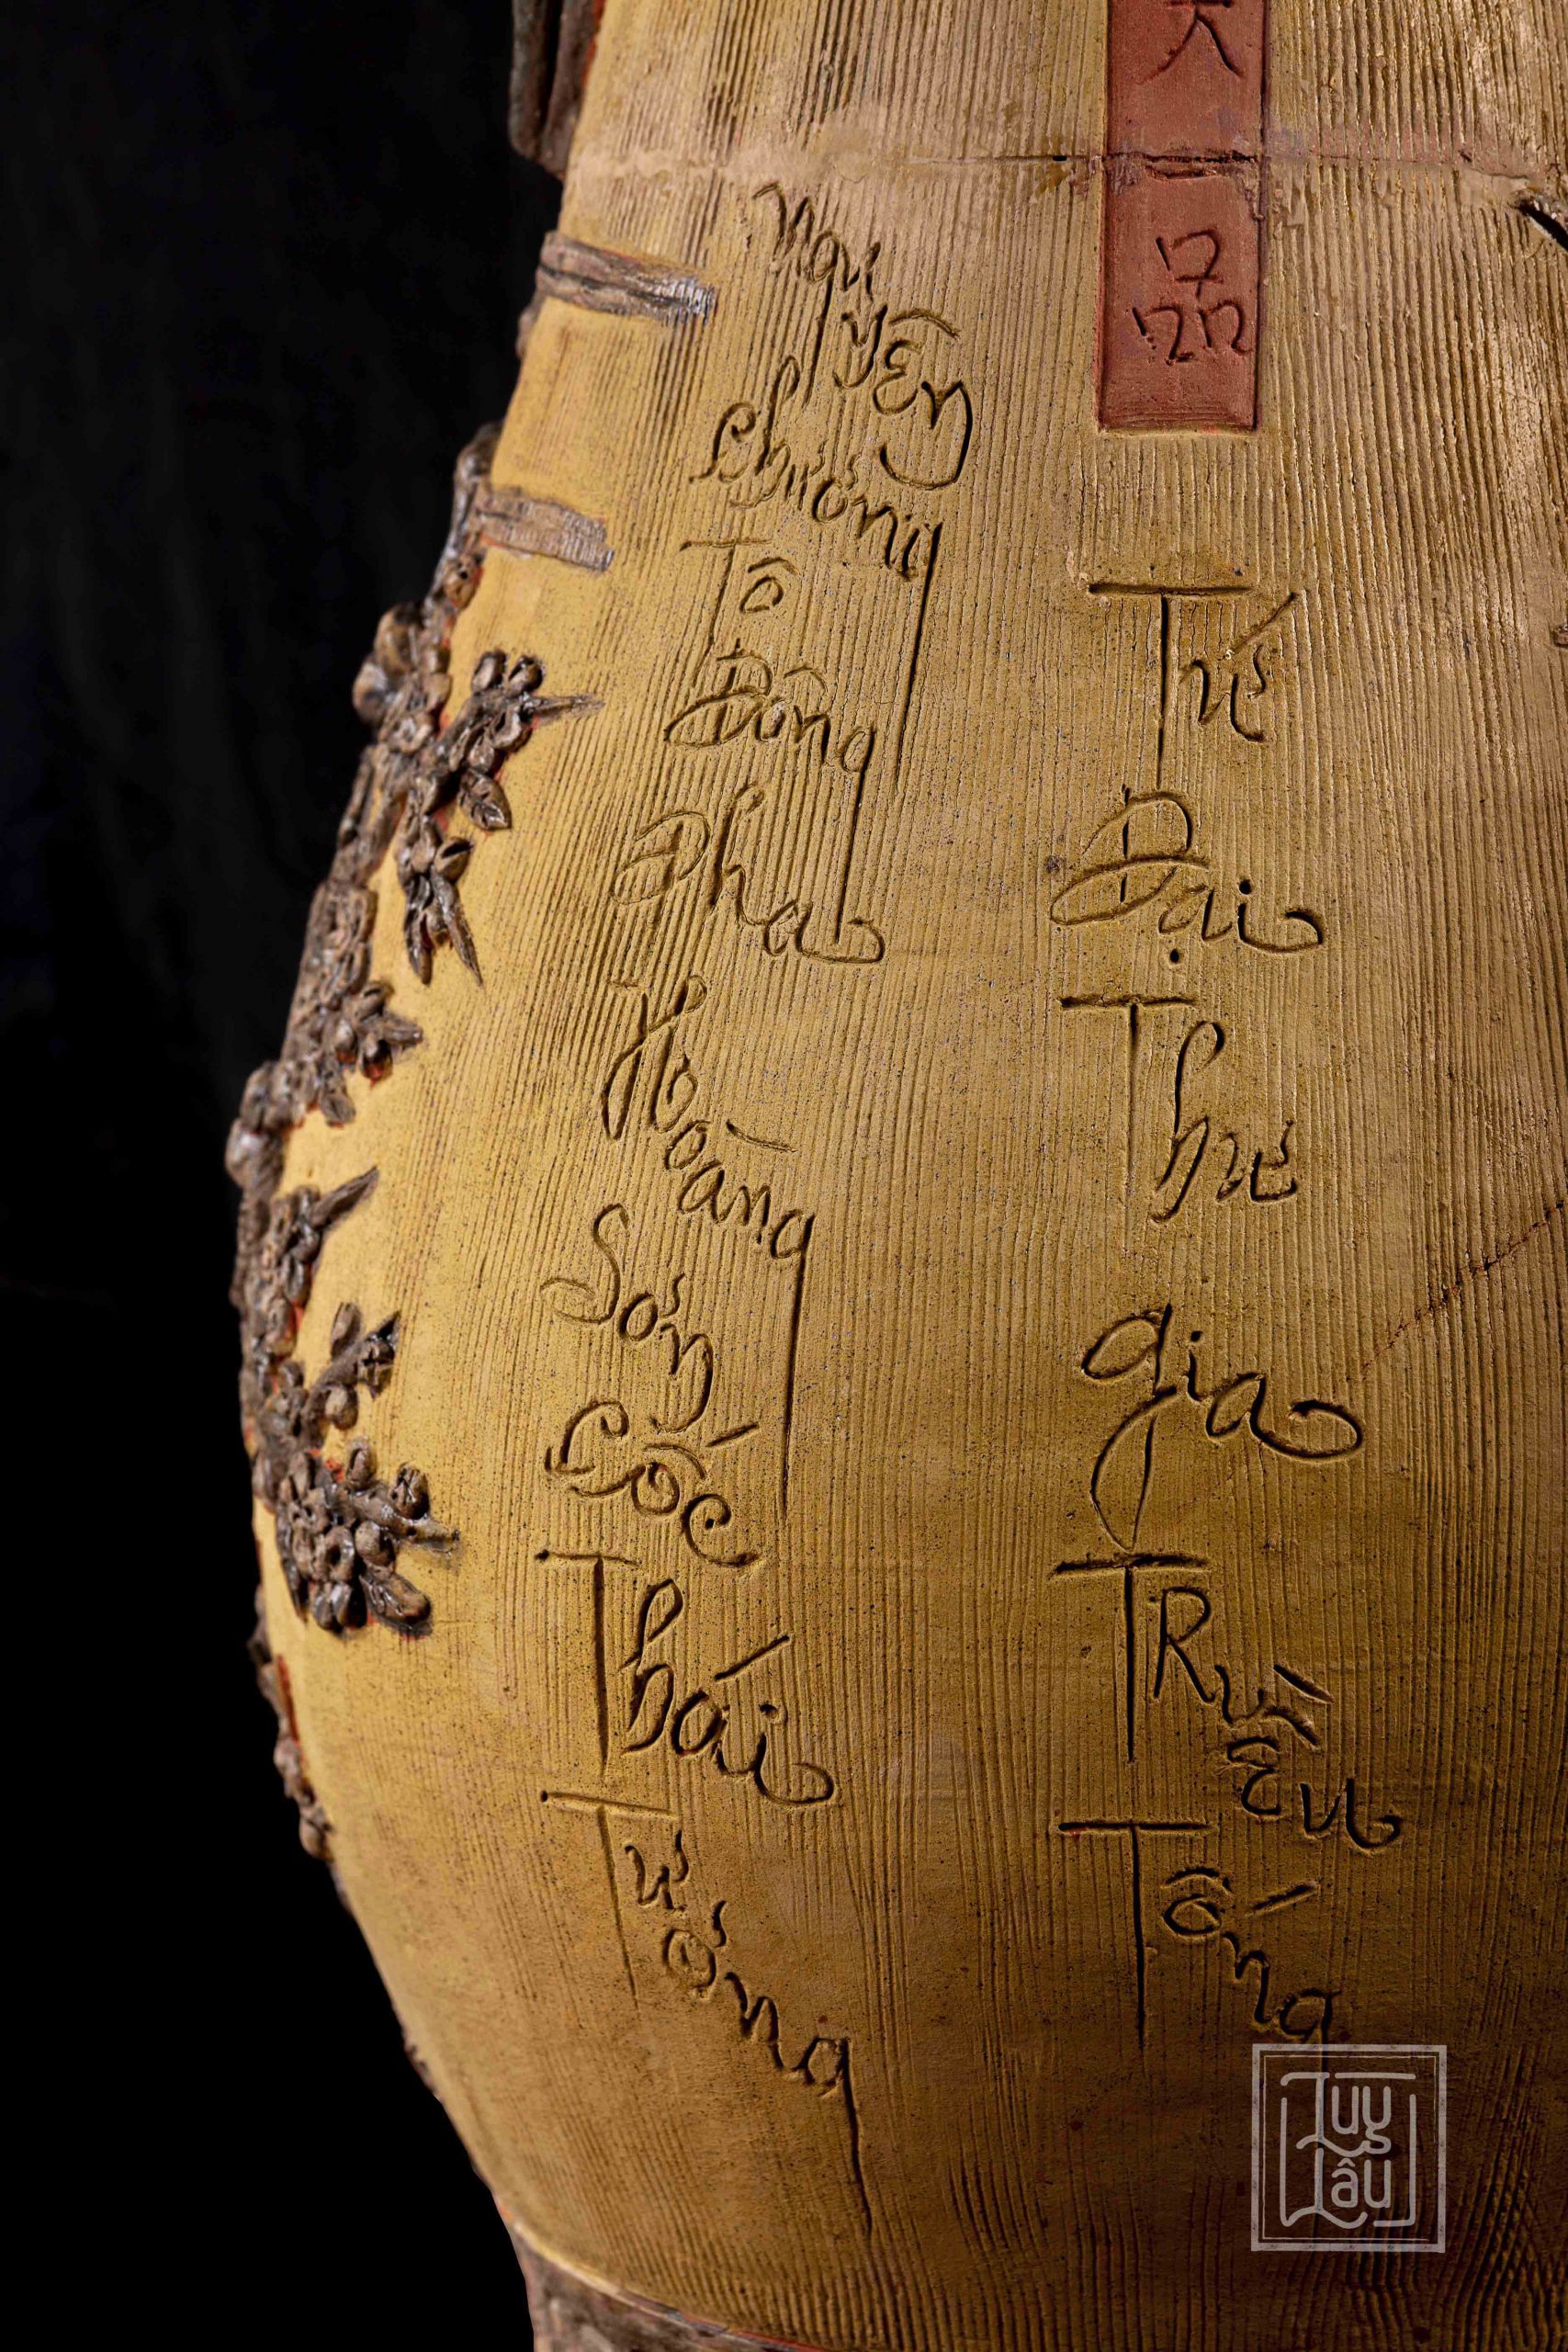 品
Tứ Đại Thư gia TRiều Tống
Nguyên Chương Tô Đông Pha Hoàng Sơn Cốc Thái Tương
Luy Lâu